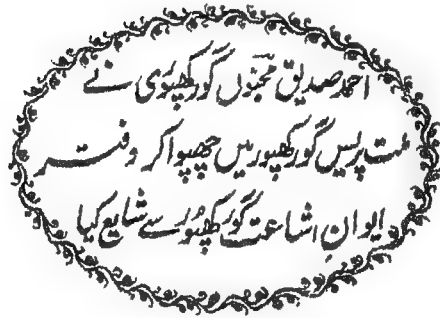 احمد صدیق مجنوں گورکھپوری نے
پریس گورکھپور میں چھپوا کر دفتر
ایوانِ اشاعت گورکھپور سے شایع کیا